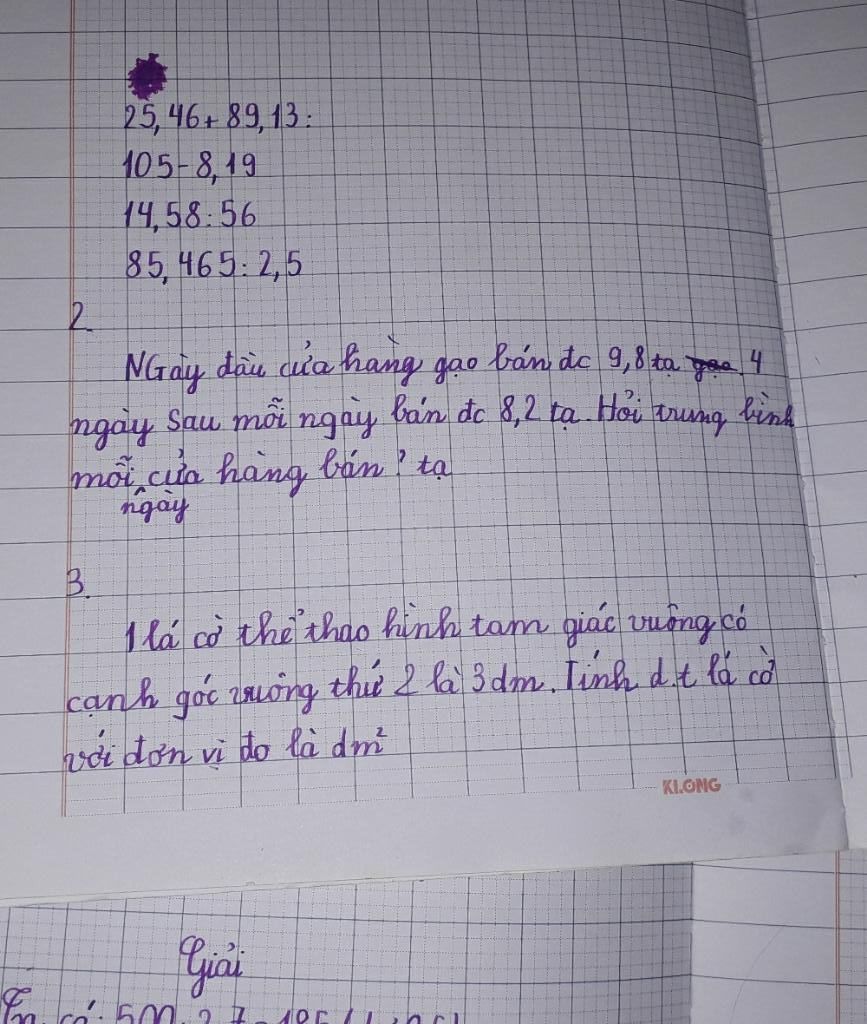 25,46+ 89,13:
105-8,19
14,58:56
85,465:2,5
2.
NGày đầu cửa hàng gạo bán đc 9,8 tạ 4
ngày sau mỗi ngày bán đc 8,2 tạ. Hỏi trung bình
mỗi cửa hàng bán ? tạ
ngày
3.
1 lá cờ thể thao hình tam giác vuông có
cạnh góc vuông thứ 2 là 3dm. Tính d.t lá cờ
với đơn vị đo là dm²
KLONG
Giải